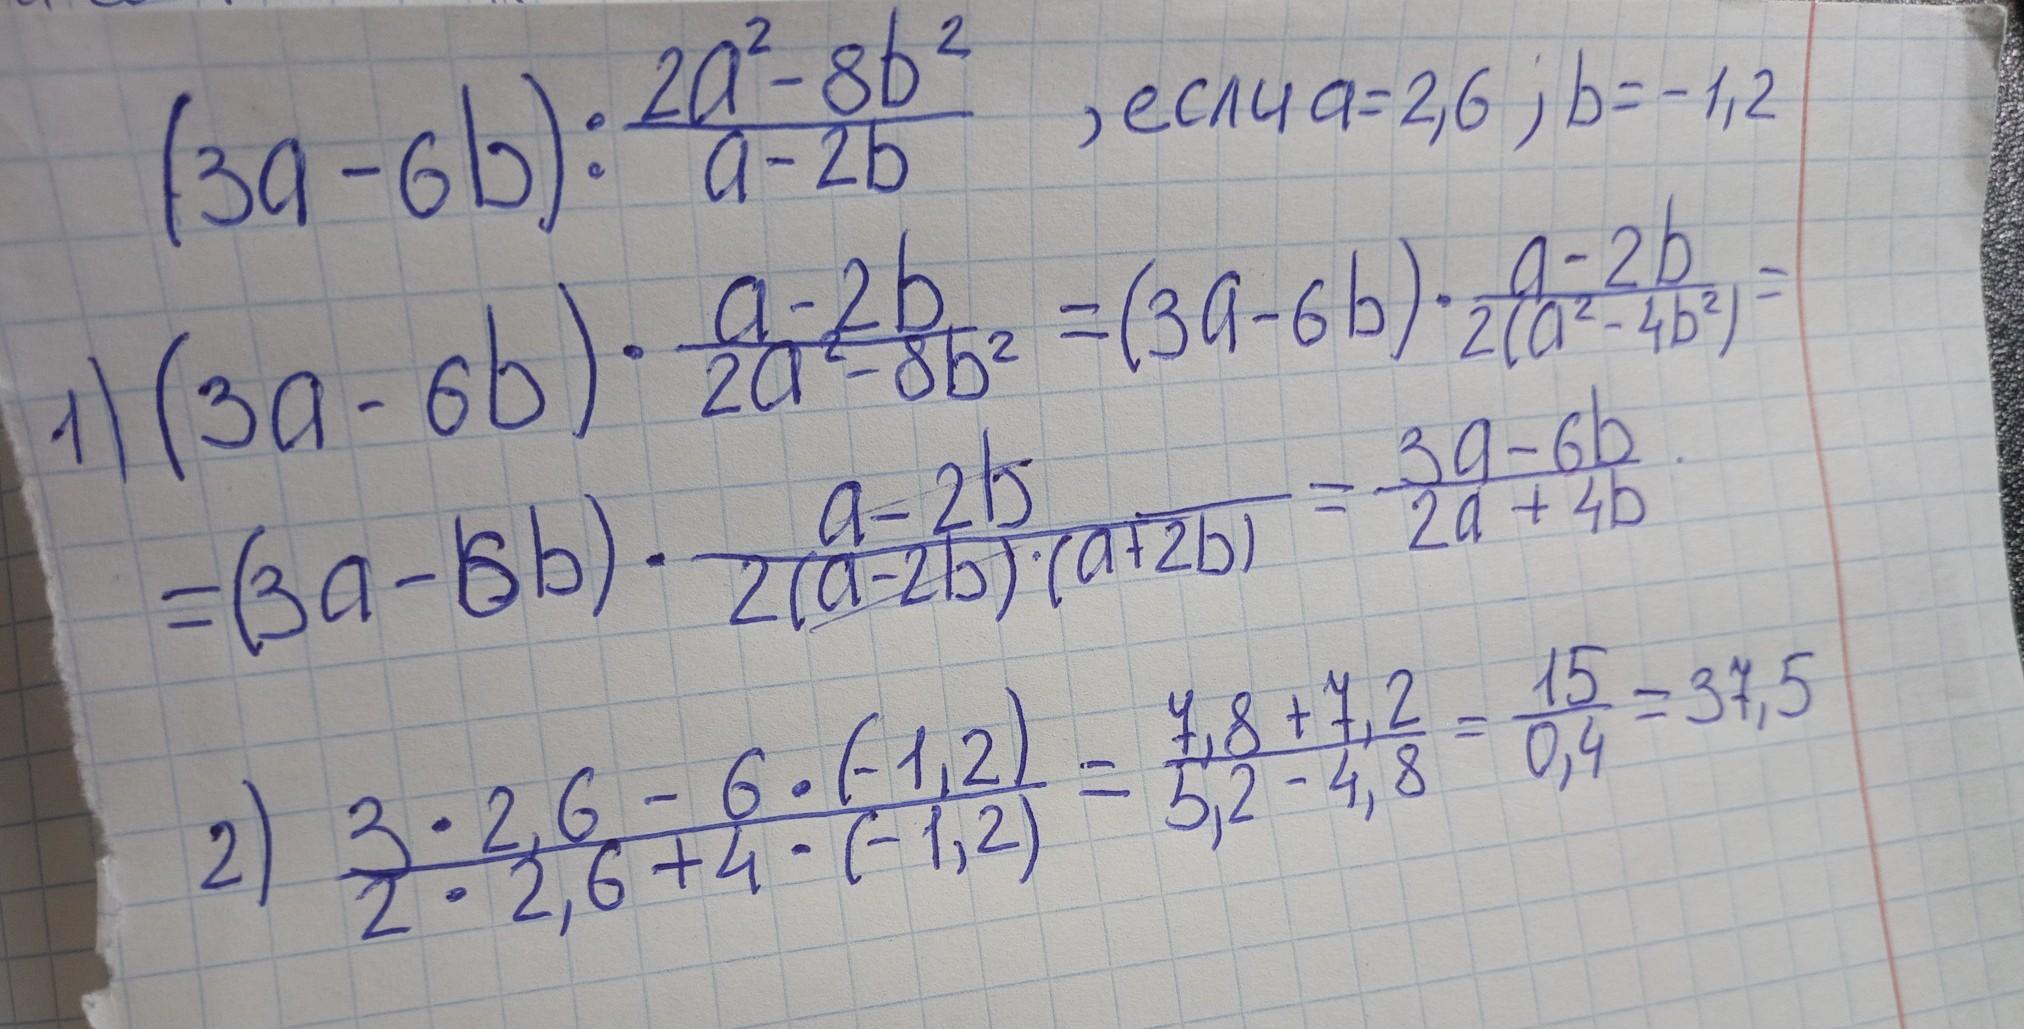 (3a-6b):\frac{2a²-8b²}{a-2b}, если a=2,6; b=-1,2
1) (3a-6b)·\frac{a-2b}{2a²-8b²}=(3a-6b)·\frac{a-2b}{2(a²-4b²)}=
=(3a-6b)·\frac{a-2b}{2(a-2b)·(a+2b)}=\frac{3a-6b}{2a+4b}.
2) \frac{3·2,6-6·(-1,2)}{2·2,6+4·(-1,2)}=\frac{7,8+7,2}{5,2-4,8}=\frac{15}{0,4}=37,5